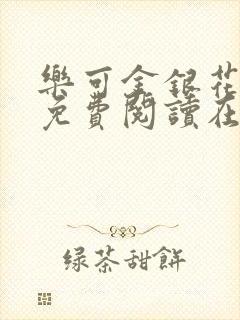 樂可金銀花
免費閱讀在
绿茶甜餅